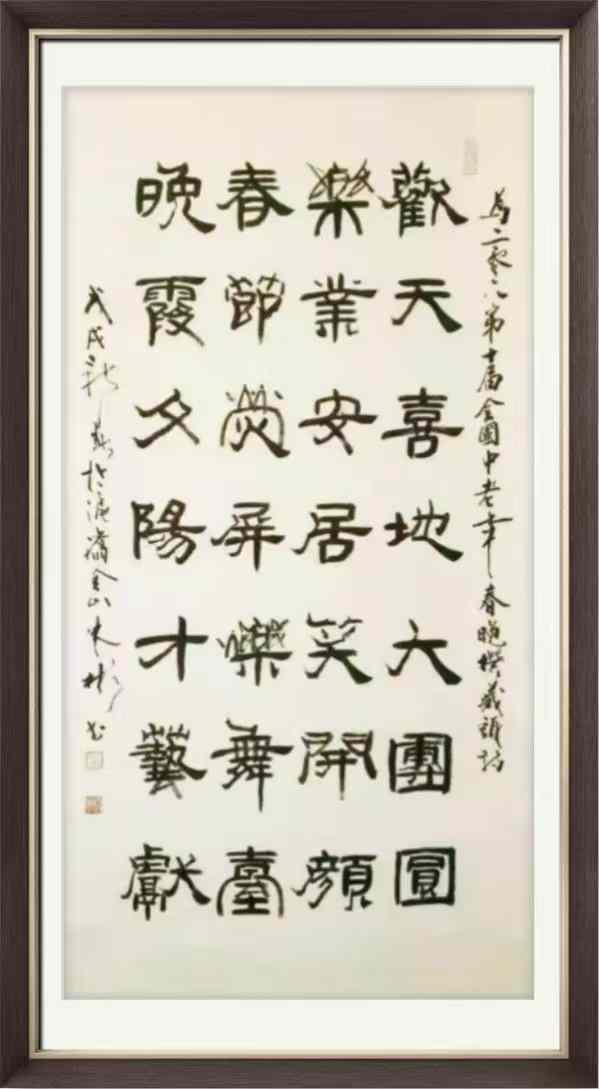 為二零一八第十届全國中老年春晚撰藏頭詩
歡天喜地大團圓
樂業安居笑開顏
春節熒屏爍舞臺
晚霞夕陽才藝獻
戊戌新於滬金山朱彬